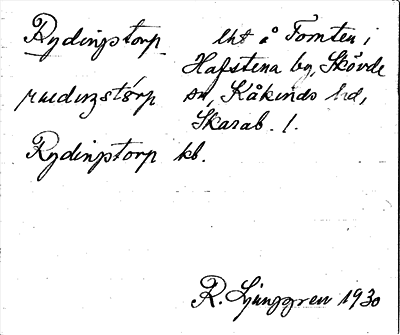 Rydingstorp lht å Tomten i
Hafstena by, Skövde
sn, Kåkinds hd,
Skarab. l.
Rydingstorp kb.
R. Ljunggren 1930